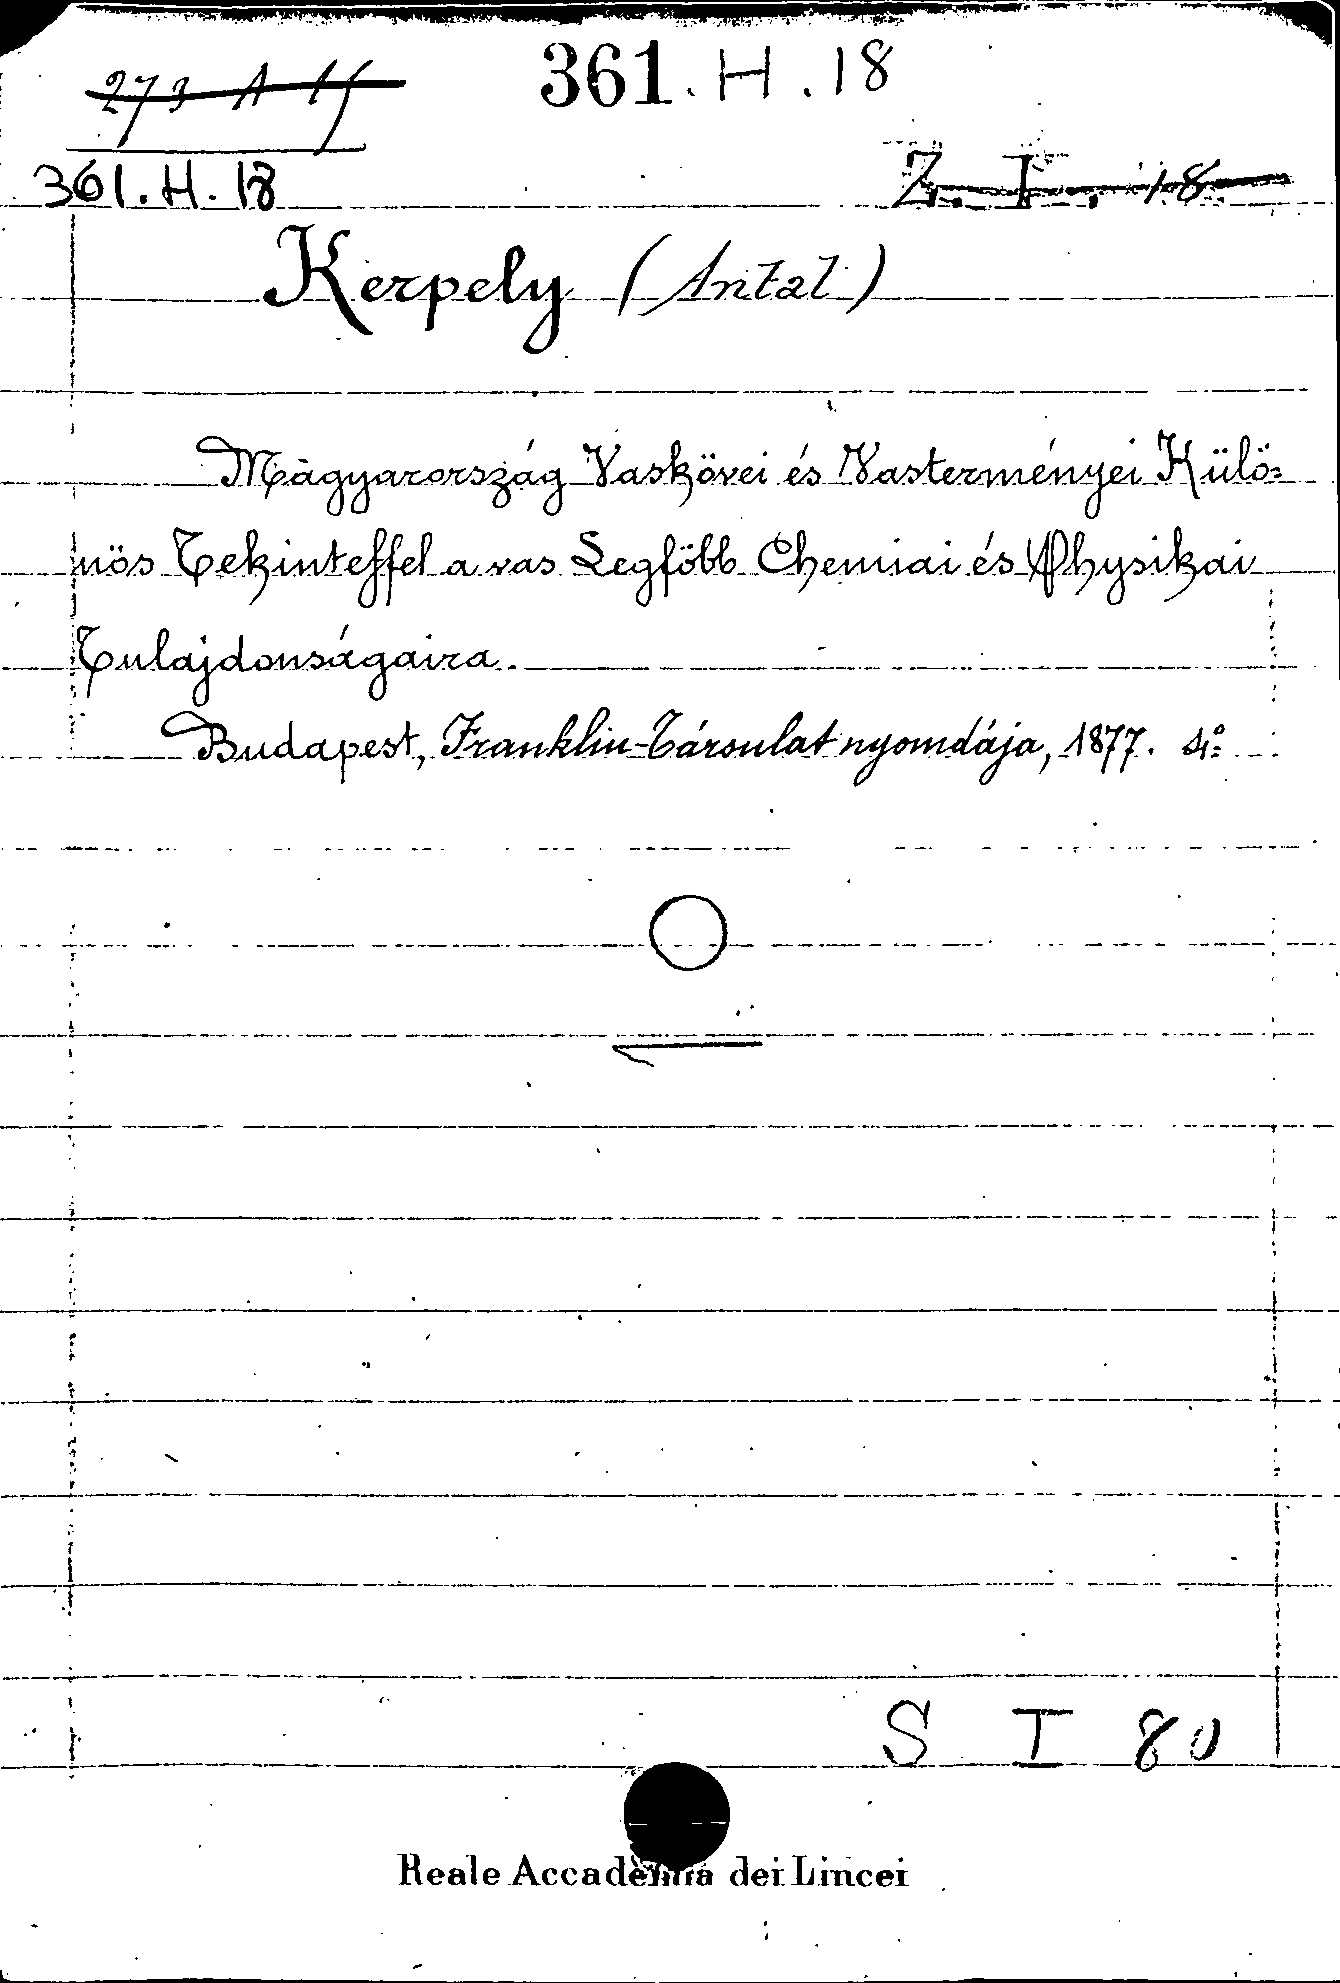 273 A 15
361.H.18
361.H.18
Z. I. 18
Kerpely (Antal)
Magyarország Vaskövei és Vasterményei Külö=
nös Tekinteffel a vas Legföbb Chemiai és Physikai
Tulajdonságaira.
Budapest, Franklin-Társulat nyomdája, 1877. 4°
S I 80
Reale Accademia dei Lincei